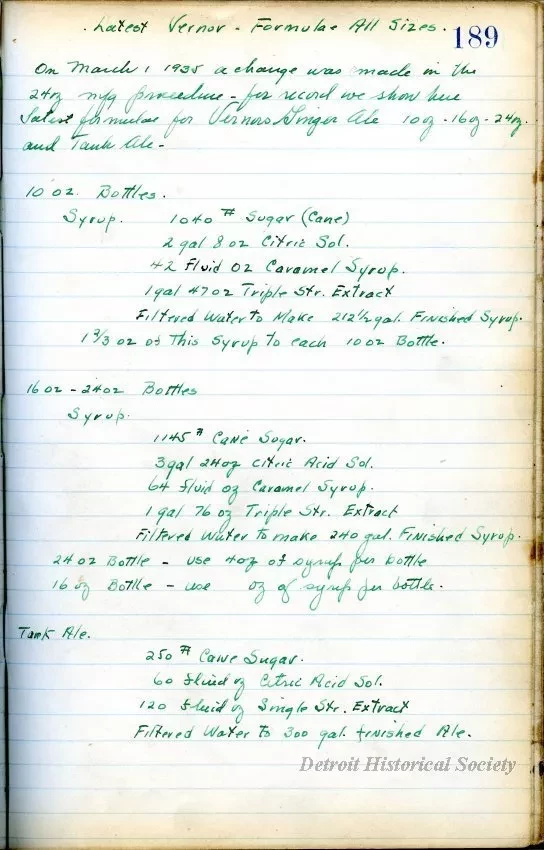 Latest Vernor - Formulae All Sizes.
189
On March 1 1935 a change was made in the
24oz mfg procedure - for record we show here
latest formulae for Vernors Ginger Ale 10oz - 16oz - 24oz.
and Tank Ale -
10 oz. Bottles.
Syrup. 1040 # Sugar (Cane)
2 gal 8 oz Citric Sol.
42 Fluid Oz Caramel Syrup.
1 gal 47 oz Triple Str. Extract
Filtered Water to Make 212 1/2 gal. Finished Syrup.
1 2/3 oz of This Syrup to each 10 oz Bottle.
16 oz - 24 oz Bottles
Syrup.
1145 # Cane Sugar.
3 gal 24oz Citric Acid Sol.
64 fluid oz Caramel Syrup.
1 gal 76 oz Triple Str. Extract
Filtered Water to make 240 gal. Finished Syrup.
24 oz Bottle - use 4oz of syrup per bottle
16 oz Bottle - use oz of syrup per bottle.
Tank Ale.
250 # Cane Sugar.
60 fluid oz Citric Acid Sol.
120 fluid oz Single Str. Extract
Filtered Water to 300 gal. finished Ale.
Detroit Historical Society